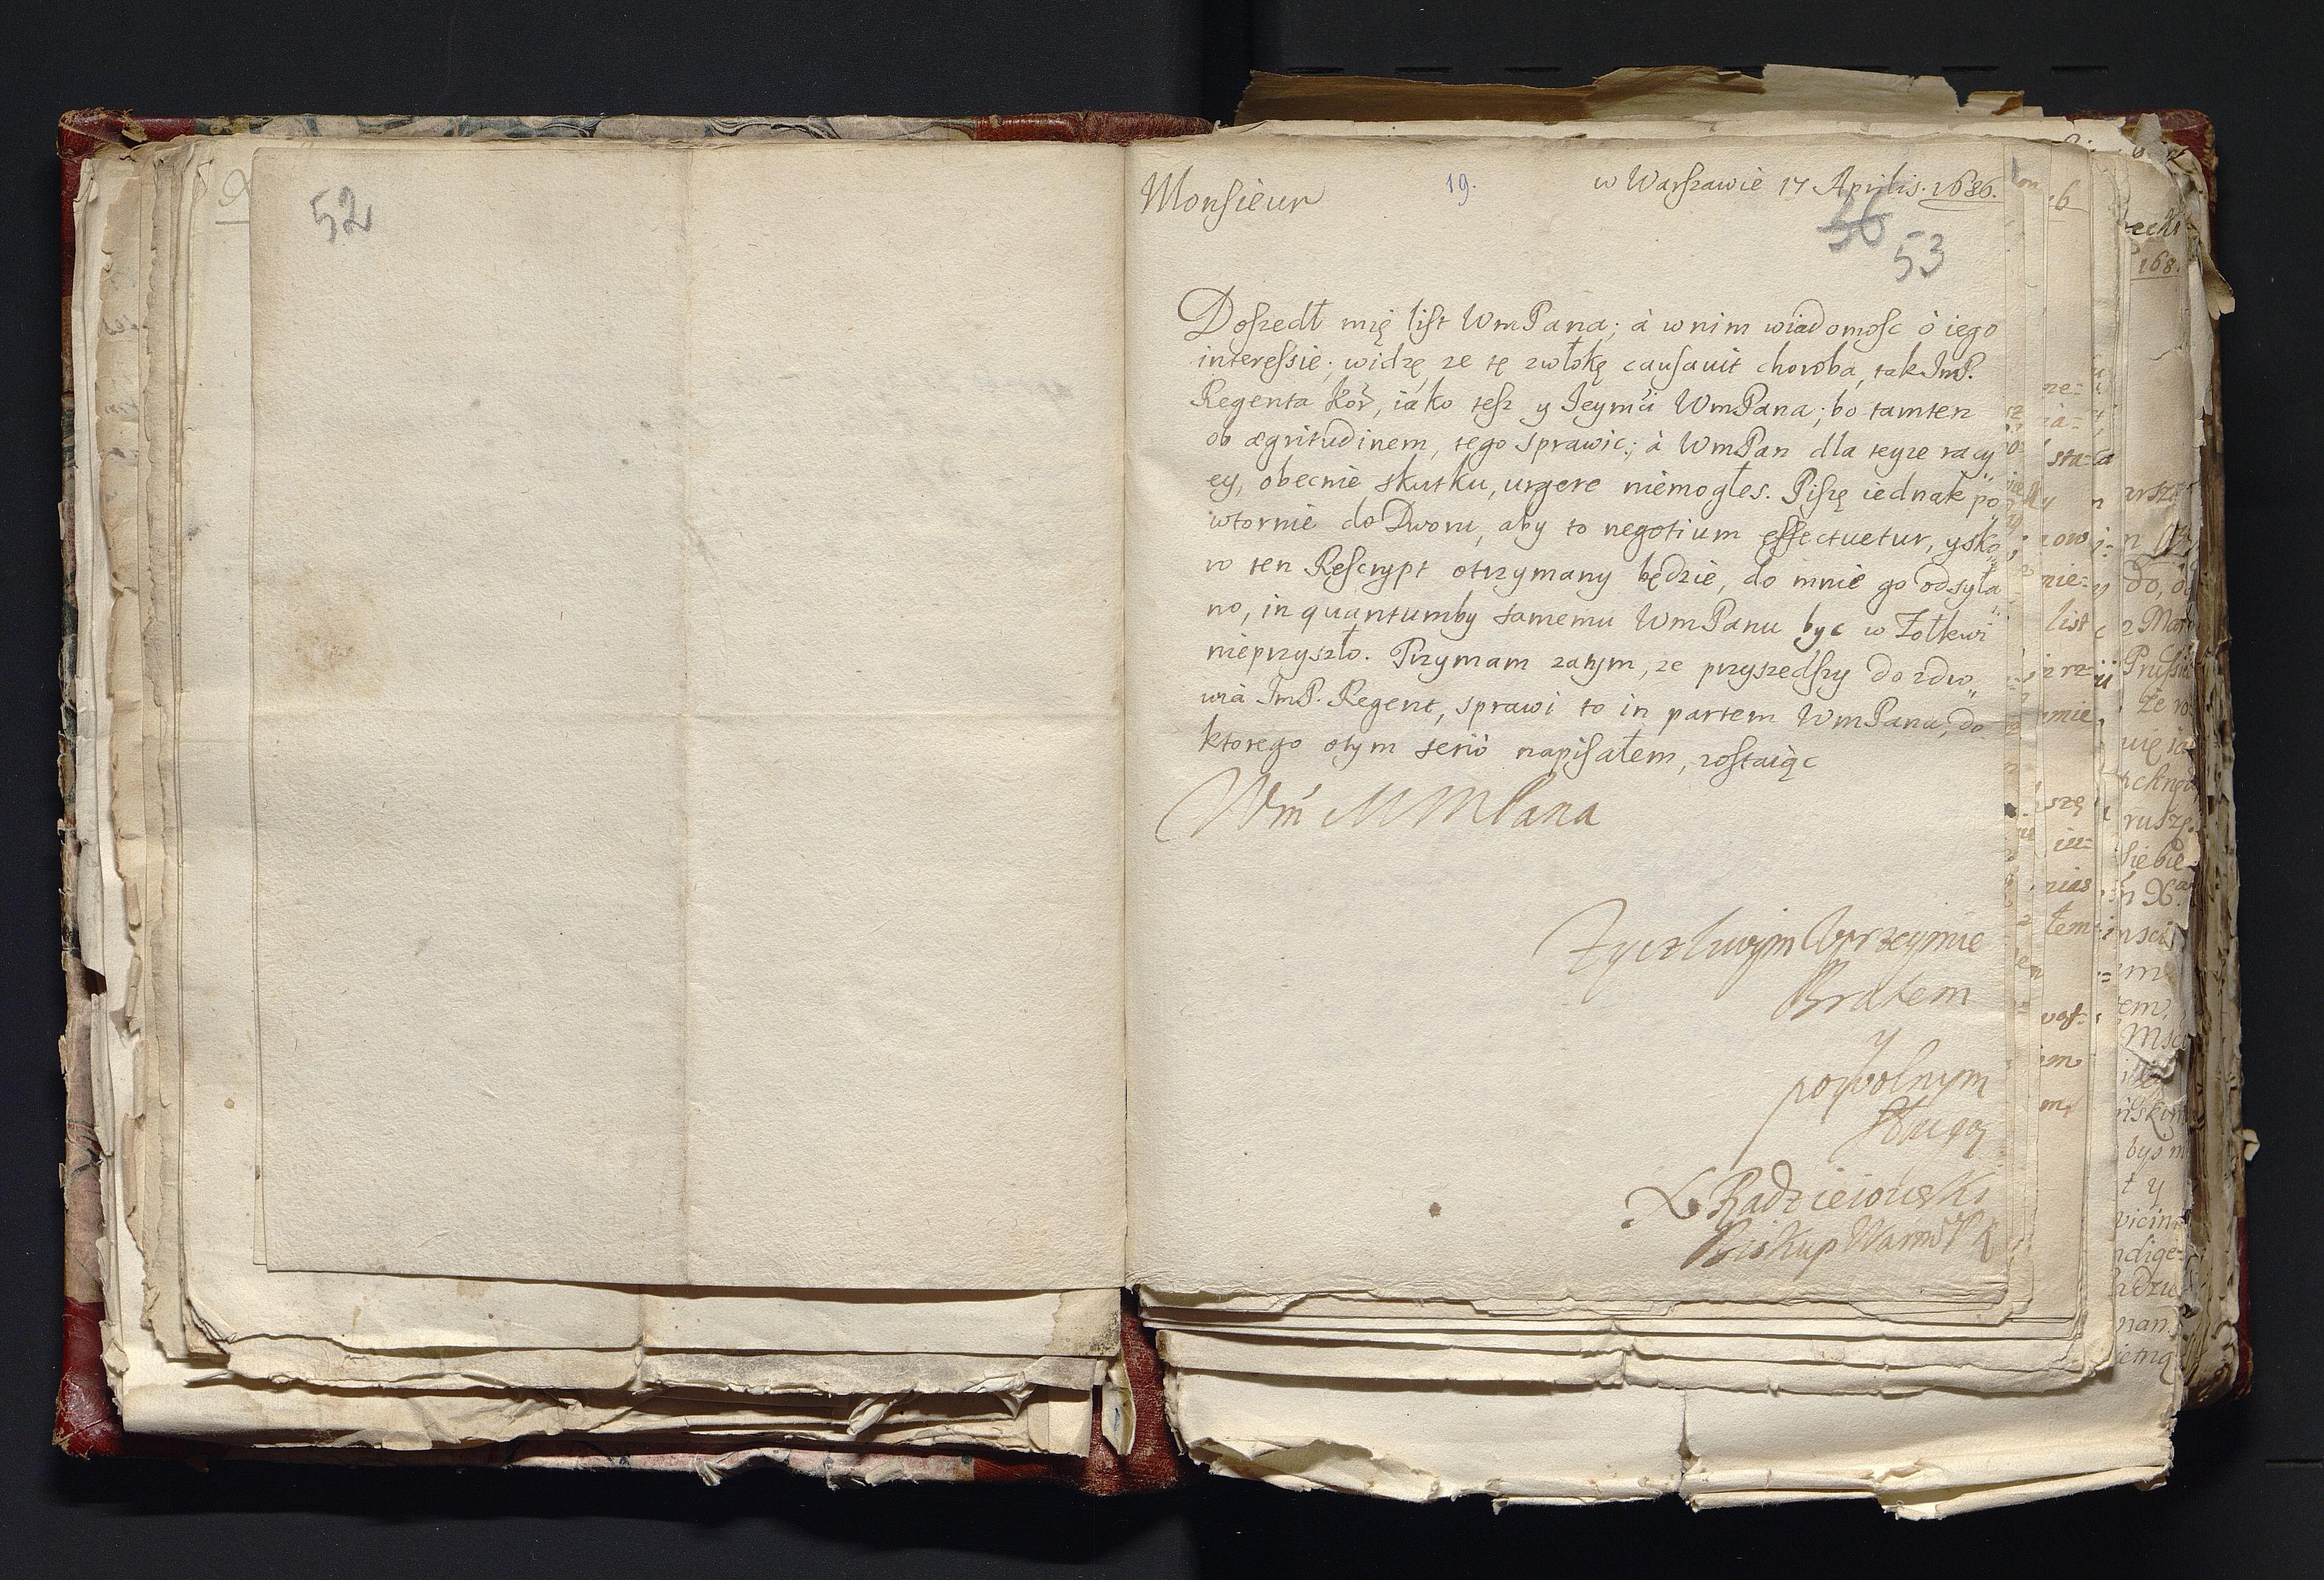 52
Monsieur
19.
w Warszawie 17 Aprilis. 1686.
36
53
Doszedł mię list WmPana; à wnim wiadomosc ò iego
interessie; widzę ze tę zwłokę causauit choroba, tak JmP.
Regenta Kor, iako tesz y Jeymći WmPana; bo tamten
ob ægritudinem, tego sprawic; à WmPan dla teyze racy„
ey, obecnie skutku, urgere niemogłes. Piszę iednak po„
wtornie do Dworu, aby to negotium effectuetur, ysko„
ro ten Rescrypt otrzymany będzie, do mnie go odsyła„
no, in quantumby samemu WmPanu byc w Zołkwi
nieprzyszło. Trzymam zatym, ze przyszedszy do zdro„
wia JmP. Regent, sprawi to in partem WmPana, do
ktorego otym seriò napisałem, zostaiąc
Wm MMPana
Zyczliwym Uprzeymie
Bratem
y
powolnym
sługą
X Radzieiowski
Biskup Warm